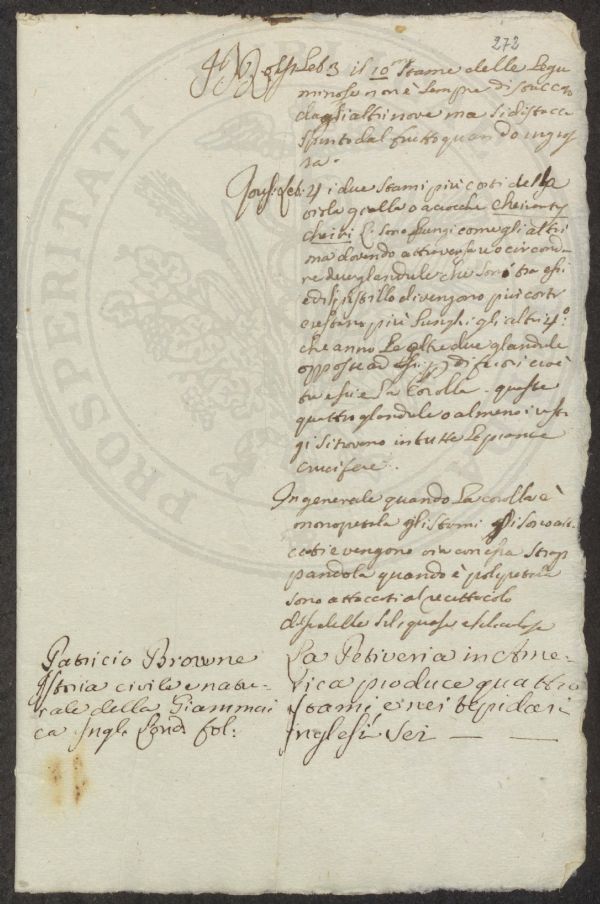 272
Feb 3 il 10mo Stame delle Legu
minose non è sempre distaccato
dagli altri nove ma si distacca
spinto dal frutto quando ingros
sa.
Feb: 4 i due stami più corti della
viola gialla o a ciocche Cheiranty
cheiri sono lunghi come gli altri
ma dovendo attraversare o circonda
re due glandule che sono tra essi
ed il pistillo divengono più corti
e restano più lunghi gli altri 4o:
che anno Le altre due glandule
opposte ad di fuori cioè
tra essi e La Corolla. queste
quattro glandule o almeno i vesti
gi si trovano in tutte Le piante
crucifere.
In generale quando La corolla è
monopetala gli stami gli sono attac
cati e vengono via con essa strap
pandola quando è polypetala
sono attaccati al recettacolo
delle siliquose e siliculose
Patricio Browne
Istoria civile e natu-
rale della Giammai
ca Ingl. Lond. fol:
La Petiveria in Ame-
rica produce quattro
stami e nei tepidari
inglesi sei — —
PROSPERITATI
PUBLICAE